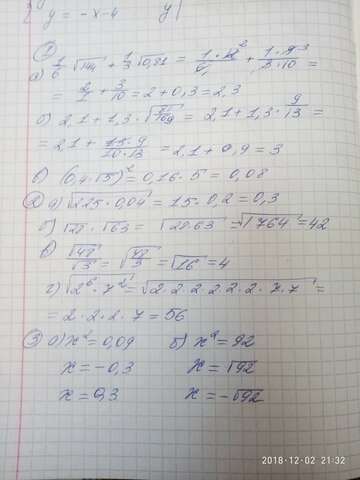 y = -x-4 y
①
а) 1/6 √144 + 1/3 √0,81 = 1·12²/6₁ + 1·9³/3·10 =
= 2/1 + 3/10 = 2 + 0,3 = 2,3
б) 2,1 + 1,3 · √81/169 = 2,1 + 1,3 · 9/13 =
= 2,1 + 13·9/10·13 = 2,1 + 0,9 = 3
в) (0,4√5)² = 0,16·5 = 0,08
② а) √225·0,04 = 15·0,2 = 0,3
б) √28 · √63 = √28·63 = √1764 = 42
в) √48/√3 = √48/3 = √16 = 4
г) √2⁶·7² = √2·2·2·2·2·2·7·7 =
= 2·2·2·7 = 56
③ а) x² = 0,09 б) x² = 92
x = -0,3 x = √92
x = 0,3 x = -√92
2018-12-02 21:32